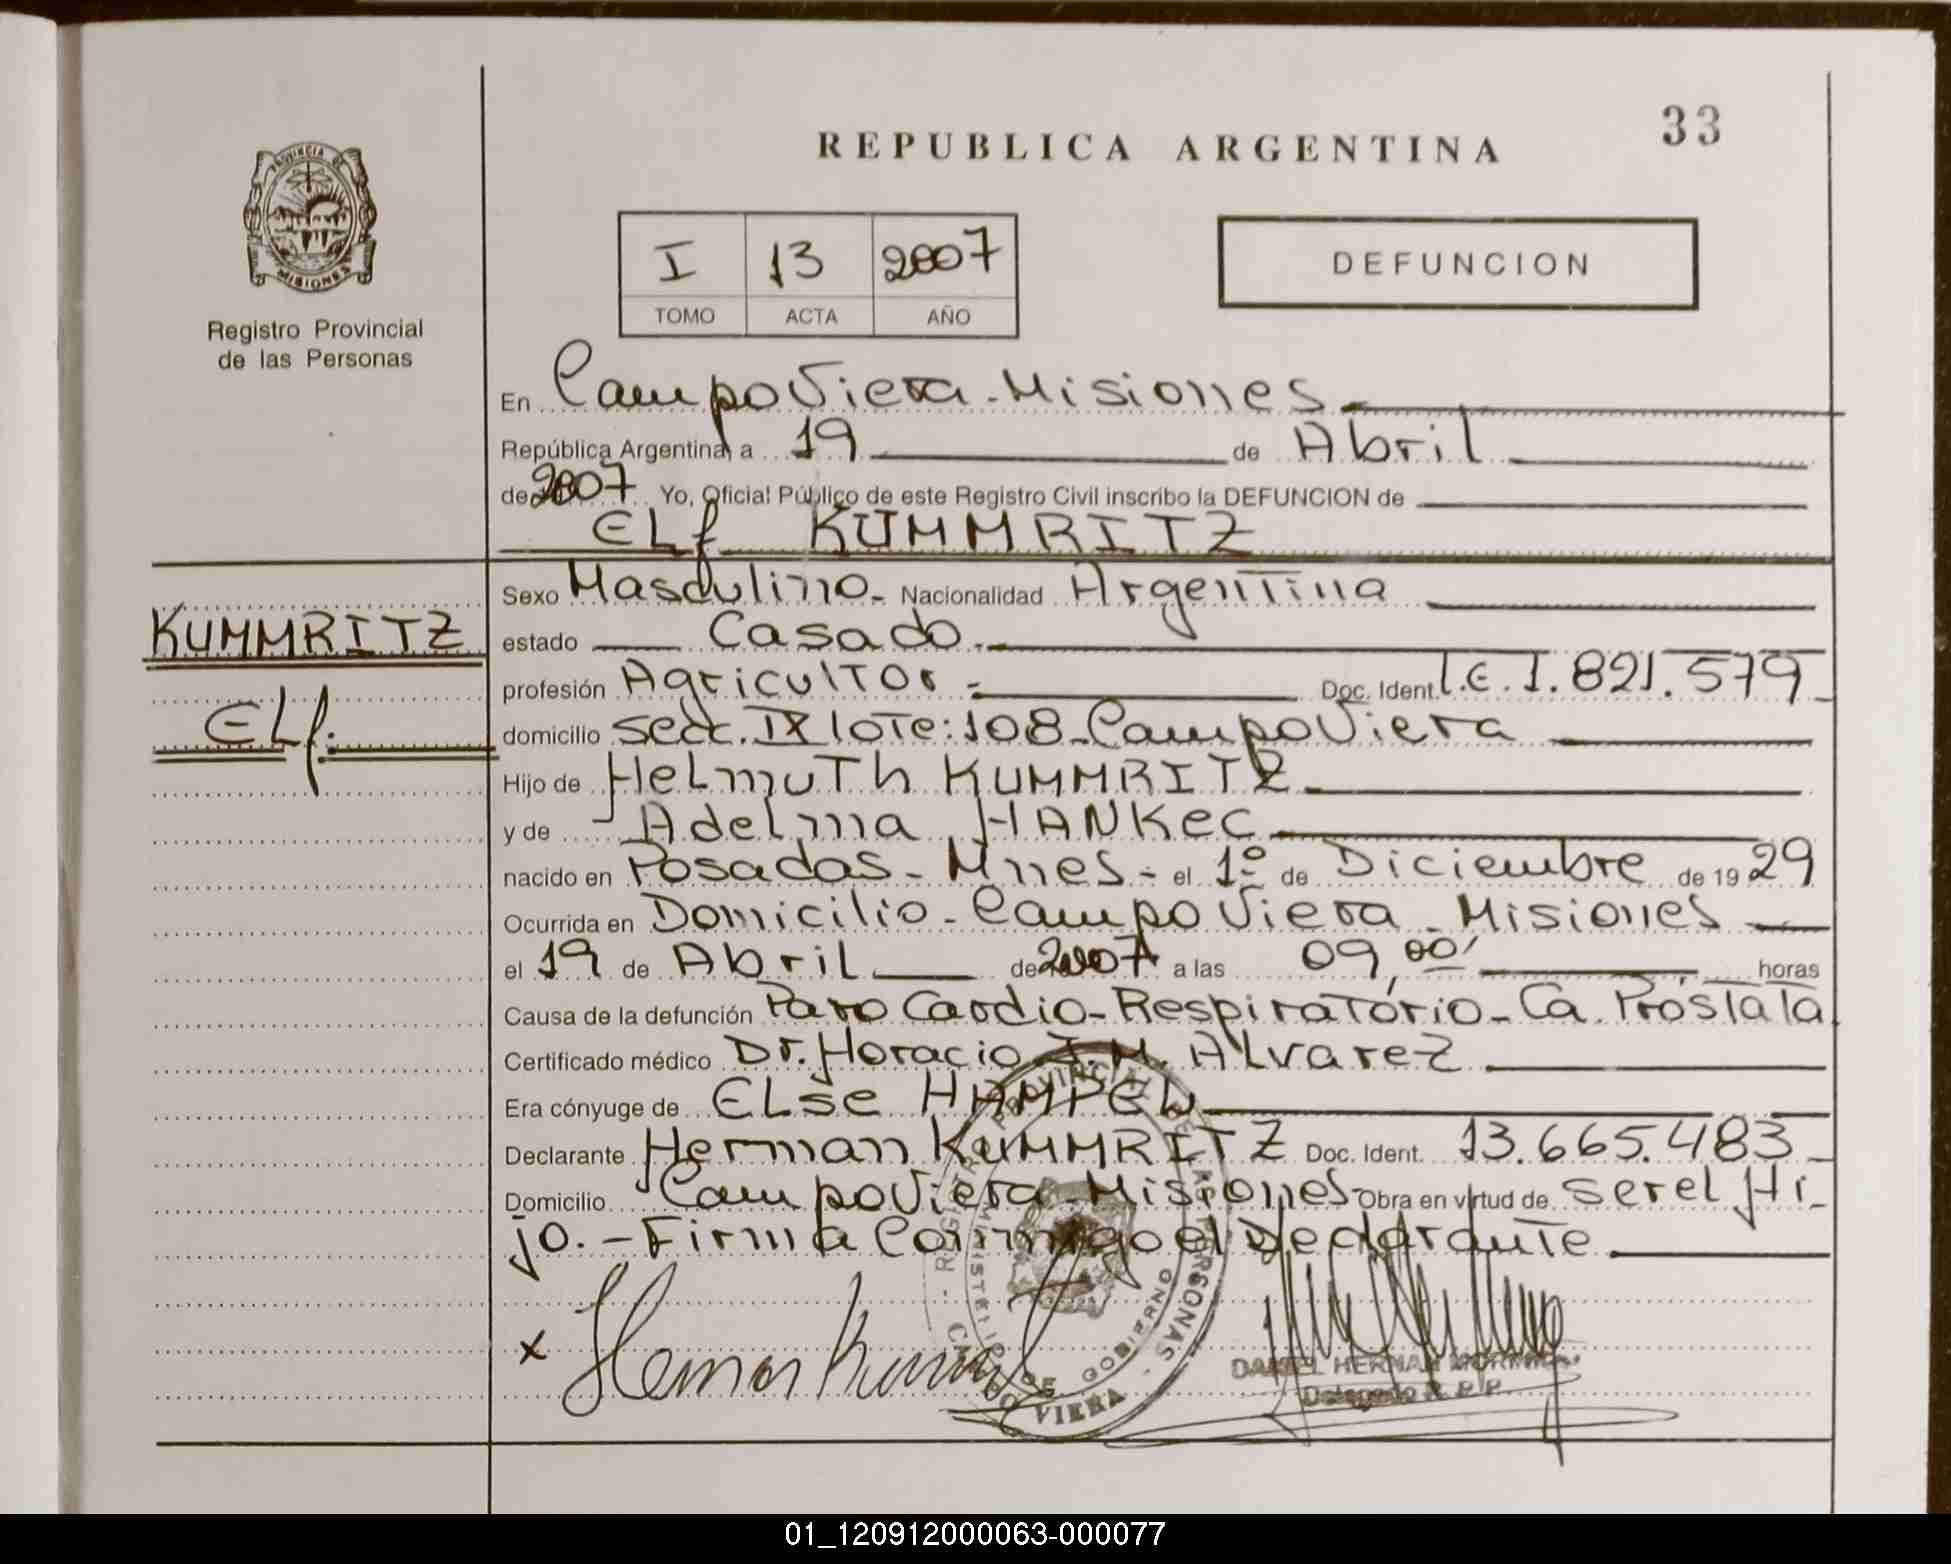 33
REPUBLICA ARGENTINA
PROVINCIA DE
MISIONES
Registro Provincial
de las Personas
I 13 2007
TOMO ACTA AÑO
DEFUNCION
En Campo Viera - Misiones
República Argentina, a 19 de Abril
de 2007 Yo, Oficial Público de este Registro Civil inscribo la DEFUNCION de
ELf KUMMRITZ
KUMMRITZ
ELf.
Sexo Masculino - Nacionalidad Argentina
estado Casado.-
profesión Agricultor - Doc. Ident. l.E. 1.821.579
domicilio secc. IX lote: 108 - Campo Viera
Hijo de Helmuth KUMMRITZ
y de Adelma HANKEC
nacido en Posadas - Mnes - el 1º de Diciembre de 1929
Ocurrida en Domicilio - Campo Viera - Misiones
el 19 de Abril de 2007 a las 09,00' horas
Causa de la defunción Paro Cardio - Respiratório - Ca. Próstata
Certificado médico Dr. Horacio J. M. Alvarez
Era cónyuge de ELse HAMPEL
Declarante Herman KUMMRITZ Doc. Ident. 13.665.483
Domicilio Campo Viera - Misiones - Obra en virtud de ser el Hi-
jo. - Firma Conmigo el Declarante
x Herman
DANIEL HERNAN
Delegado R.P.P.
REGISTRO PROVINCIAL DE LAS PERSONAS - CAMPO VIERA -
MINISTERIO DE GOBIERNO
01_120912000063-000077